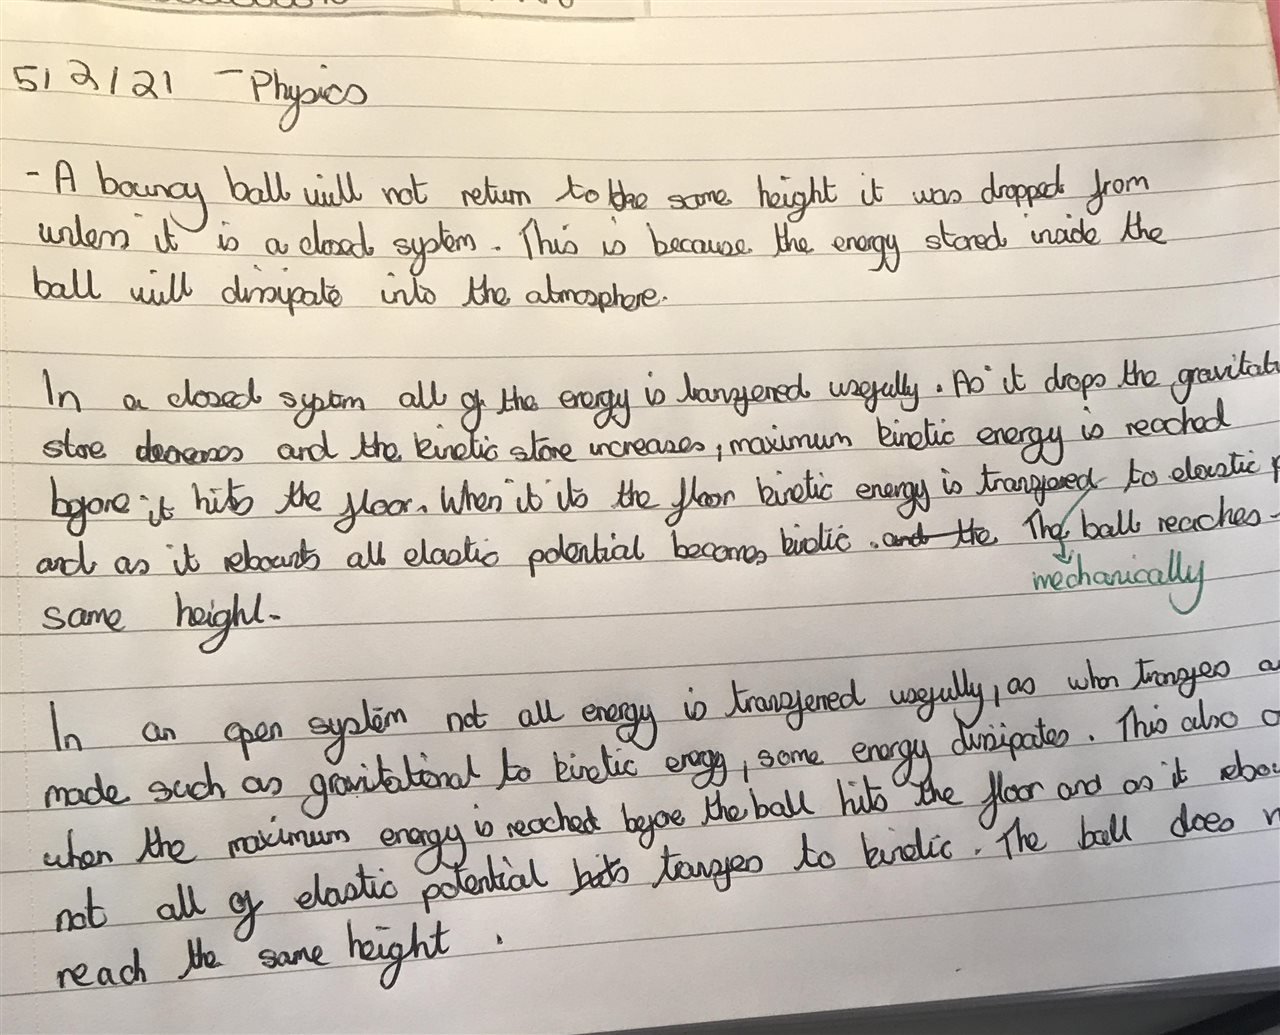 5/2/21 - Physics
- A bouncy ball will not return to the same height it was dropped from
unless it is a closed system. This is because the energy stored inside the
ball will dissipate into the atmosphere.
In a closed system all of the energy is transferred usefully. As it drops the gravitati
store decreases and the kinetic store increases, maximum kinetic energy is reached
before it hits the floor. When it its the floor kinetic energy is transfered to elastic p
and as it rebounts all elastic potential becomes kinetic. and the The ball reaches
mechanically
same height.
In an open system not all energy is transferred usefully, as when transfers a
made such as gravitational to kinetic energy, some energy dissipates. This also o
when the maximum energy is reached before the ball hits the floor and as it rebou
not all of elastic potential transfers to kinetic. The ball does n
reach the same height.